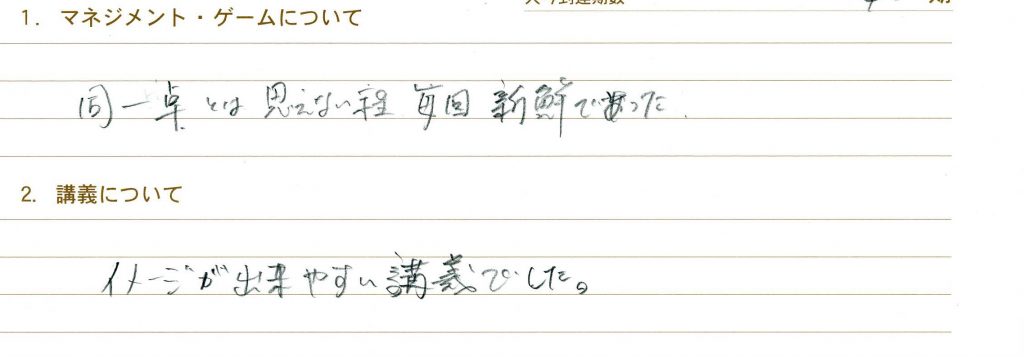 1. マネジメント・ゲームについて
同一卓とは思えない程 毎回 新鮮であった.
2. 講義について
イメージが出来やすい講義でした。